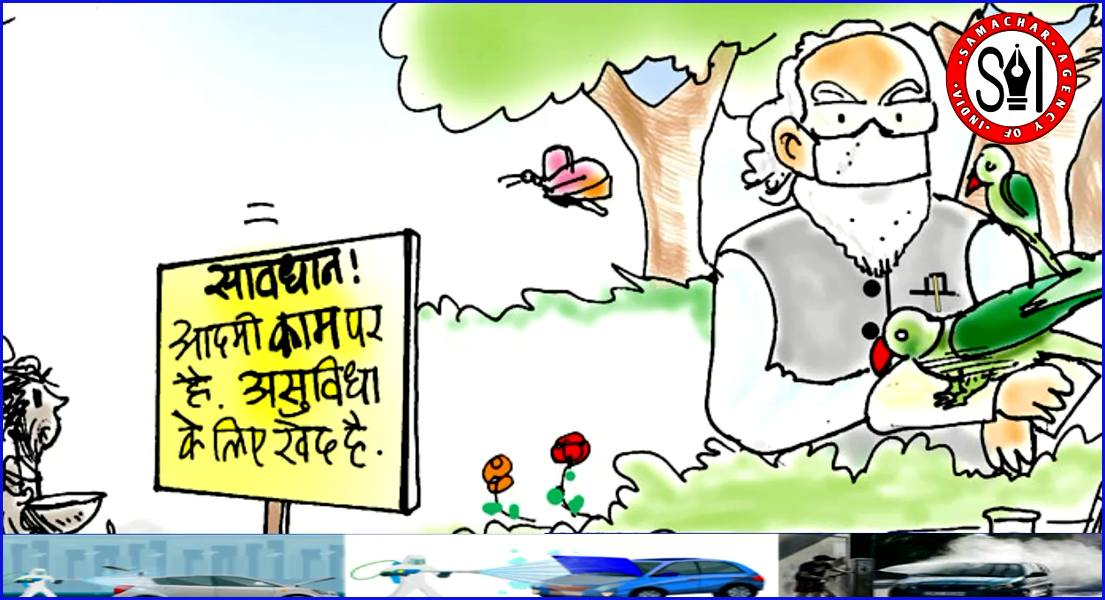 सावधान!
आदमी काम पर
है. असुविधा
के लिए खेद है.
SAMACHAR AGENCY OF INDIA